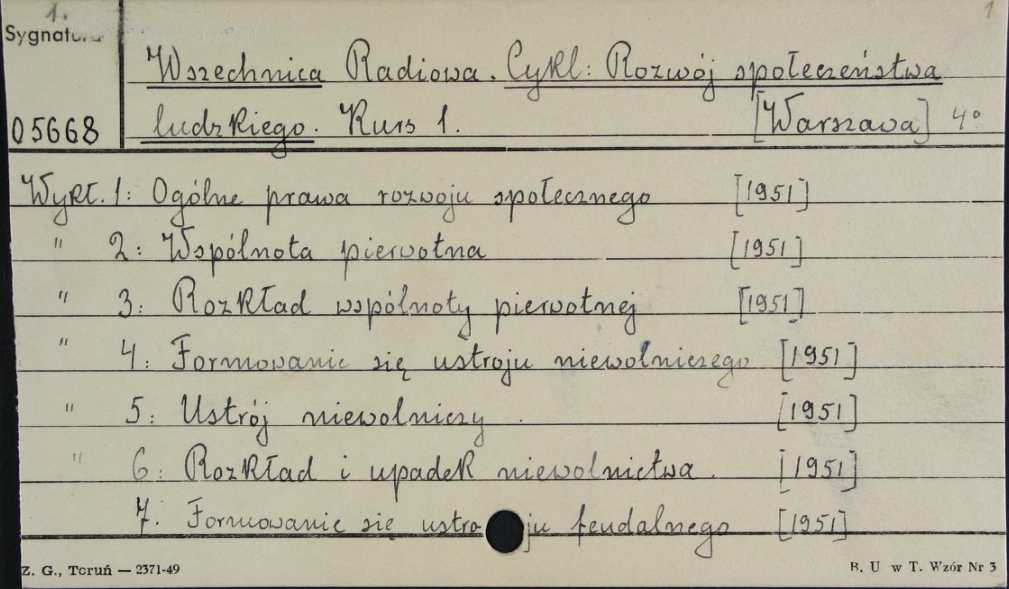 1. 1
Sygnatura
Wszechnica Radiowa. Cykl: Rozwój społeczeństwa
05668 ludzkiego. Kurs 1. [Warszawa] 4°
Wykł. 1: Ogólne prawa rozwoju społecznego [1951]
" 2: Wspólnota pierwotna [1951]
" 3: Rozkład wspólnoty pierwotnej [1951]
" 4: Formowanie się ustroju niewolniczego [1951]
" 5: Ustrój niewolniczy. [1951]
" 6: Rozkład i upadek niewolnictwa. [1951]
7. Formowanie się ustroju feudalnego [1951]
Z. G., Toruń — 2371-49 B. U w T. Wzór Nr 3